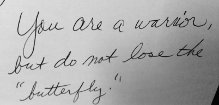 You are a warrior,
but do not lose the
"butterfly."